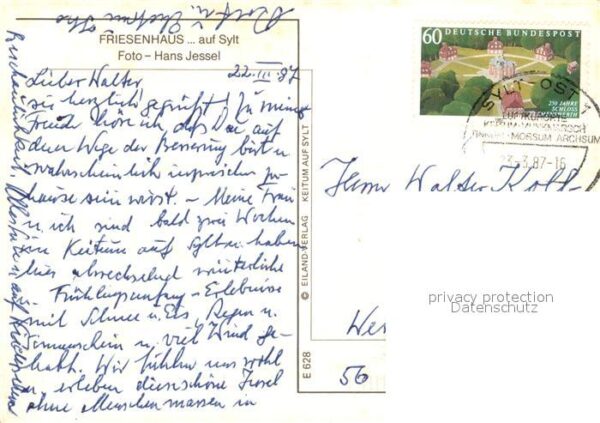 FRIESENHAUS ... auf Sylt
Foto – Hans Jessel
22. III. 87
Lieber Walter,
sei herzlich gegrüßt! Zu meiner
Freude höre ich, daß Du auf
dem Wege der Besserung bist u.
wahrscheinlich inzwischen zu-
hause sein wirst. – Meine Frau
u. ich sind bald zwei Wochen
in Keitum auf Sylt u. haben
hier abwechselnd winterliche
u. Frühlingsanfang-Erlebnisse
mit Schnee u. Eis, Regen u.
Sonnenschein u. viel Wind ge-
habt. Wir fühlen uns wohl
u. erleben diese schöne Insel
ohne Menschenmassen in
Beschaulichkeit.
© EILAND-VERLAG KEITUM AUF SYLT
E 628
60 DEUTSCHE BUNDESPOST
250 JAHRE
SCHLOSS
CLEMENSWERTH
SYLT-OST 1
MORSUM ARCHSUM
23.-3.87-16
Herrn Walter Koll-
Wer
56
privacy protection
Datenschutz